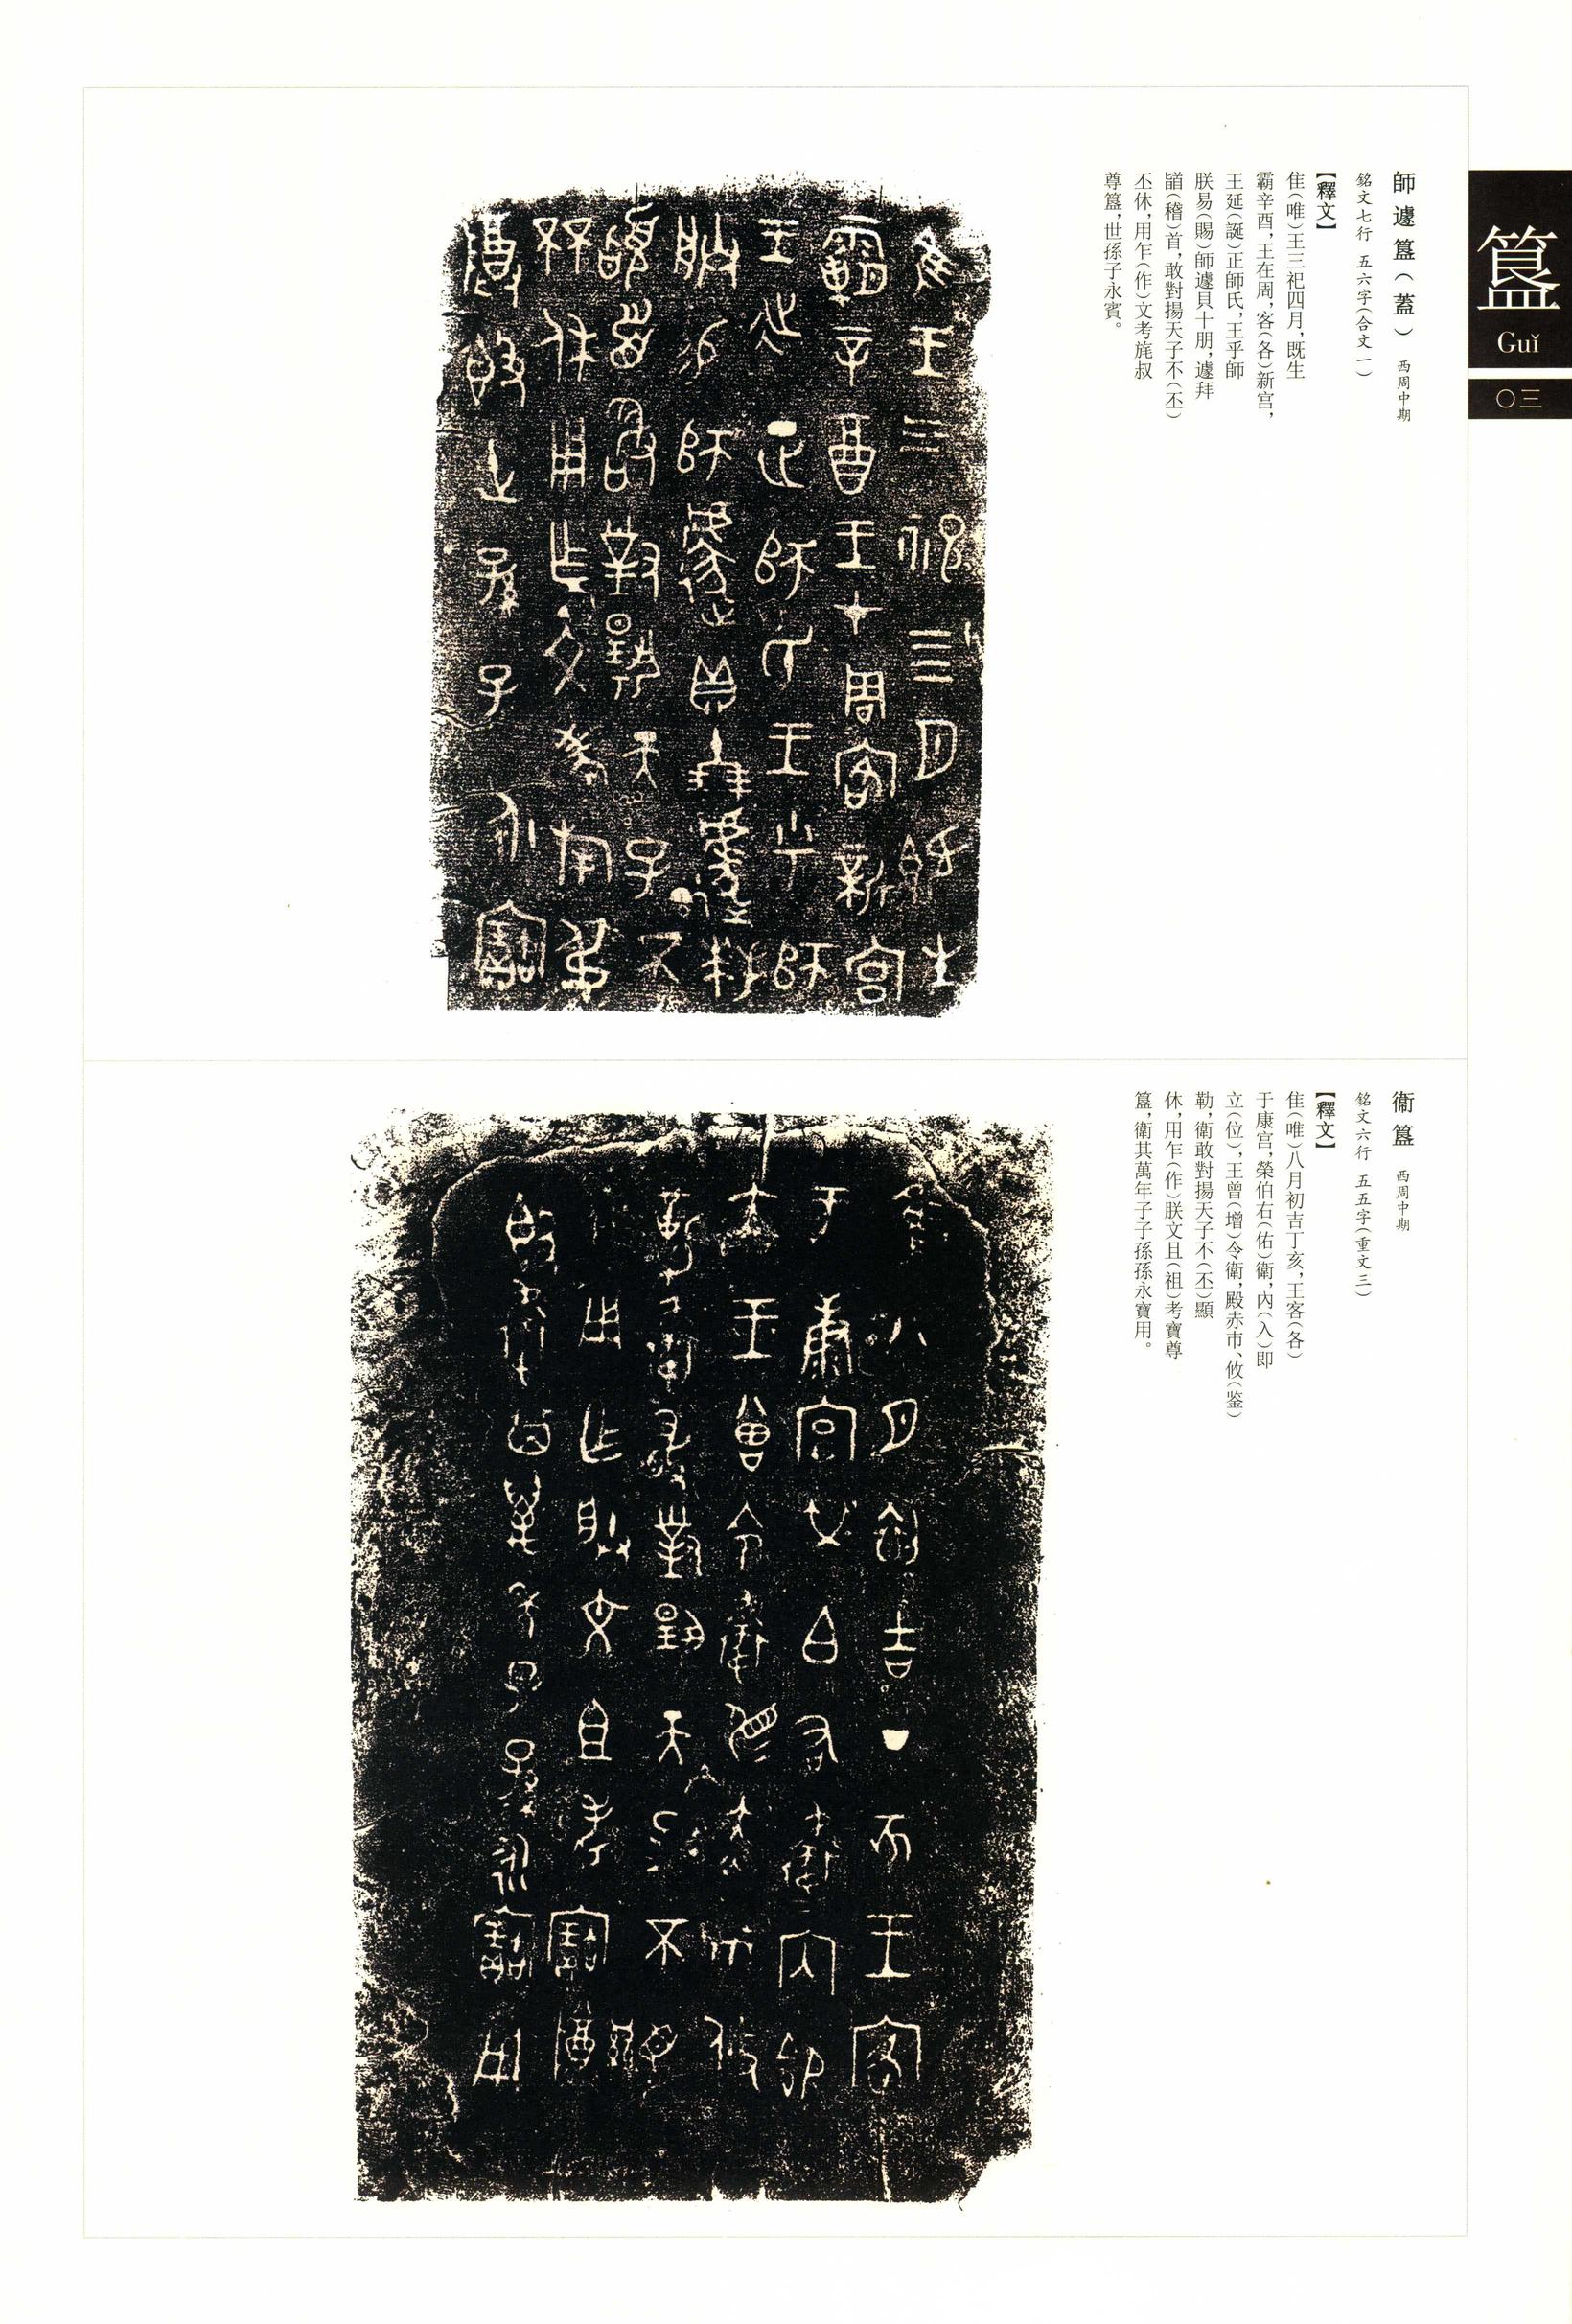 簋
Guǐ
〇三
師遽簋（蓋） 西周中期
銘文七行 五六字（合文一）
【釋文】
隹（唯）王三祀四月，既生
霸辛酉，王在周，客（各）新宫，
王延（誕）正師氏，王乎師
朕易（賜）師遽貝十朋，遽拜
䭫（稽）首，敢對揚天子不（丕）
丕休，用乍（作）文考旄叔
尊簋，世孫子永寶。
衞簋 西周中期
銘文六行 五五字（重文三）
【釋文】
隹（唯）八月初吉丁亥，王客（各）
于康宫，榮伯右（佑）衛，内（入）即
立（位），王曾（增）令衛，殿赤巿、攸（鋚）
勒，衛敢對揚天子不（丕）顯
休，用乍（作）朕文且（祖）考寶尊
簋，衛其萬年子子孫孫永寶用。